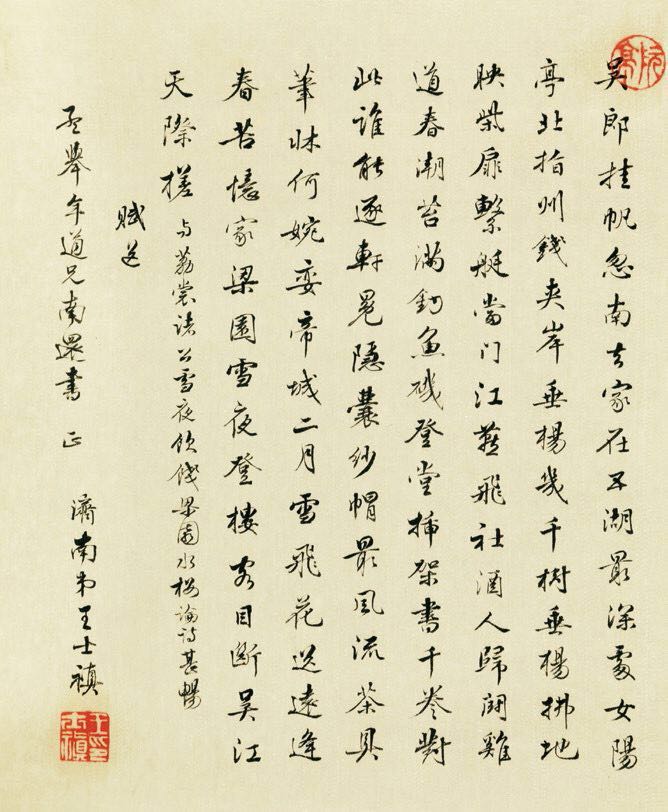 阮亭
吳郎挂帆忽南去家在五湖最深處女陽
亭北指州錢夾岸垂楊幾千樹垂楊拂地
映柴扉繫艇當门江燕飛社酒人歸鬪雞
道春潮苔滿釣魚磯登堂插架書千卷對
此誰能逐軒冕隱囊紗帽最風流茶具
筆牀何婉孌帝城二月雪飛花送遠逢
春苦憶家梁園雪夜登樓客目斷吳江
天際槎 与荔裳諸公雪夜飲餞梁園水樓論詩甚暢
賦送
孟舉年道兄南還書 正 濟南弟王士禛
王印士禛